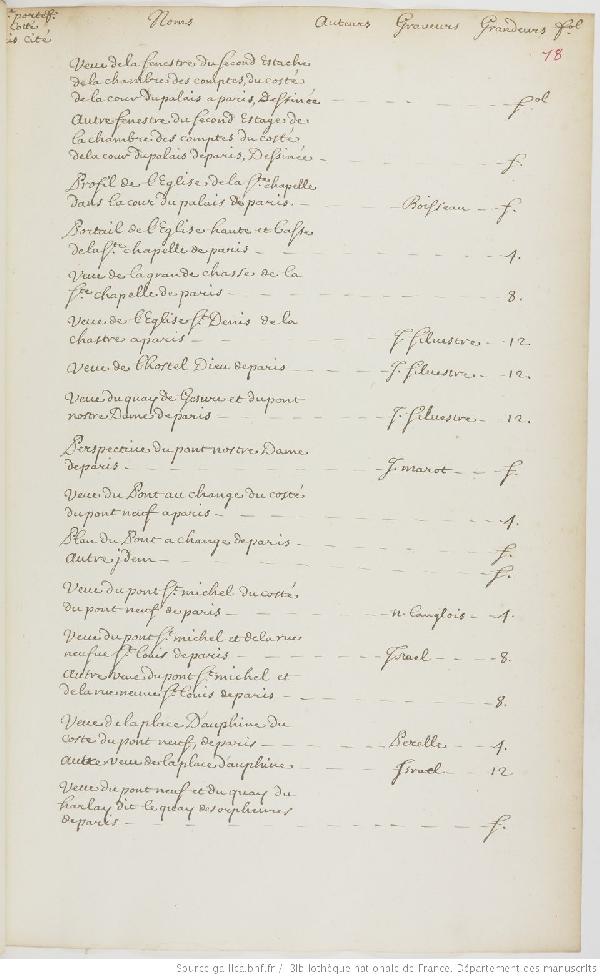 portef.
Cotté
cité
Noms Auteurs Graveurs Grandeurs fol.
78
Veue de la fenestre du second Estache
de la chambre des comptes, du costé
de la cour du palais a paris, Dessinée fol
Autre fenestre du second Estage de
la chambre des comptes du costé
de la cour du palais de paris, Dessinée f.
Profil de l'Eglise de la Ste chapelle
dans la cour du palais de paris. Boisseau f.
Portail de l'Eglise haute et basse
de la Ste chapelle de paris 4.
Veue de la grande chasse de la
Ste chapelle de paris 8.
Veue de l'Eglise St Denis de la
chastre a paris J. Silvestre 12.
Veue de l'hostel Dieu de paris J. Silvestre 12.
Veue du quay de Gesvre et du pont
nostre Dame de paris J. Silvestre 12.
Perspective du pont nostre Dame
de paris J. marot f.
Veue du Pont au change du costé
du pont neuf a paris 4.
Plan du Pont a change de paris f.
Autre jdem f.
Veue du pont St michel du costé
du pont neuf de paris n. Langlois 4.
Veue du pont St michel et de la rue
neufue St Louis de paris Israel 8.
Autre veue du pont St michel et
de la rue neuue St Louis de paris 8.
Veue de la place Dauphine du
coste du pont neuf, de paris Perelle 4.
Autre veue de la place dauphine Israel 12
Veue du pont neuf et du quay du
harlay dit le quay des orpheures
de paris f.
Source gallica.bnf.fr / Bibliothèque nationale de France. Département des manuscrits